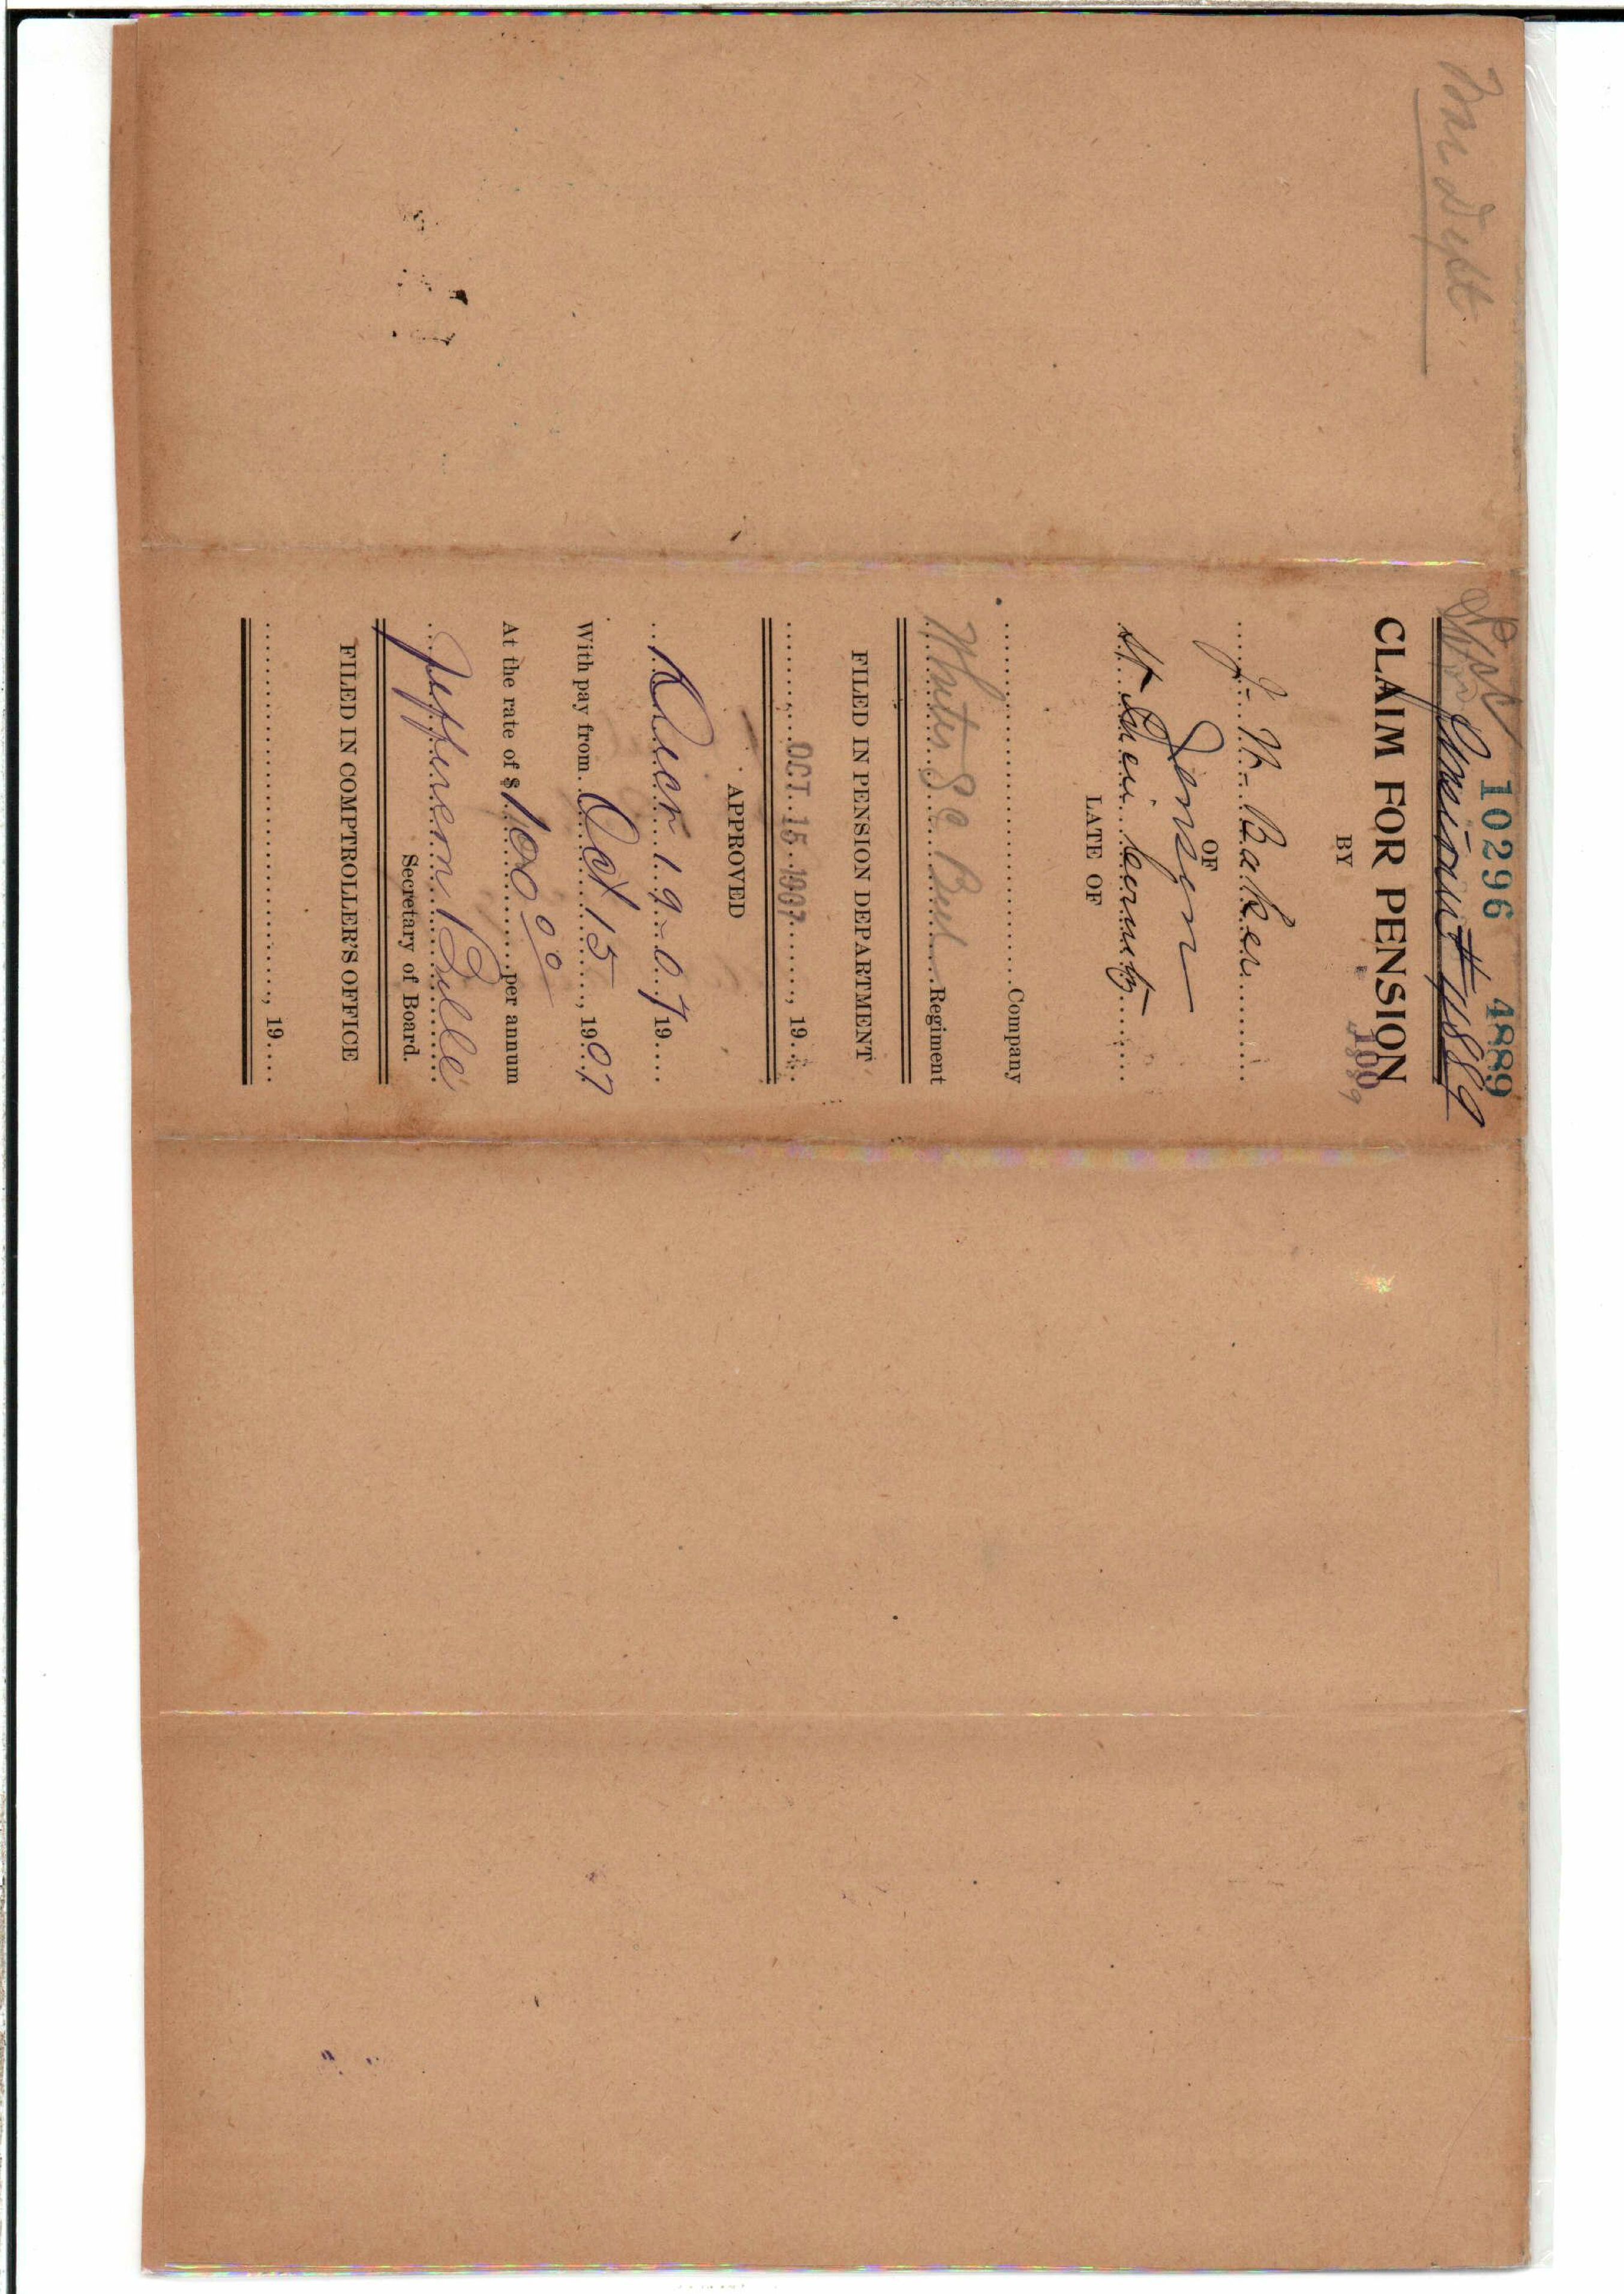 War Dept.
10296 4889
Pensioner # 4889
CLAIM FOR PENSION
100
BY
J. W. Baker
OF
Jonsyn
St Lucie County
LATE OF
Company
Regiment
FILED IN PENSION DEPARTMENT
OCT 15 1907, 19
APPROVED
Decr 19-07 19
With pay from Oct 15, 1907
At the rate of $ 100 00 per annum
Jefferson B
Secretary of Board.
FILED IN COMPTROLLER'S OFFICE
, 19